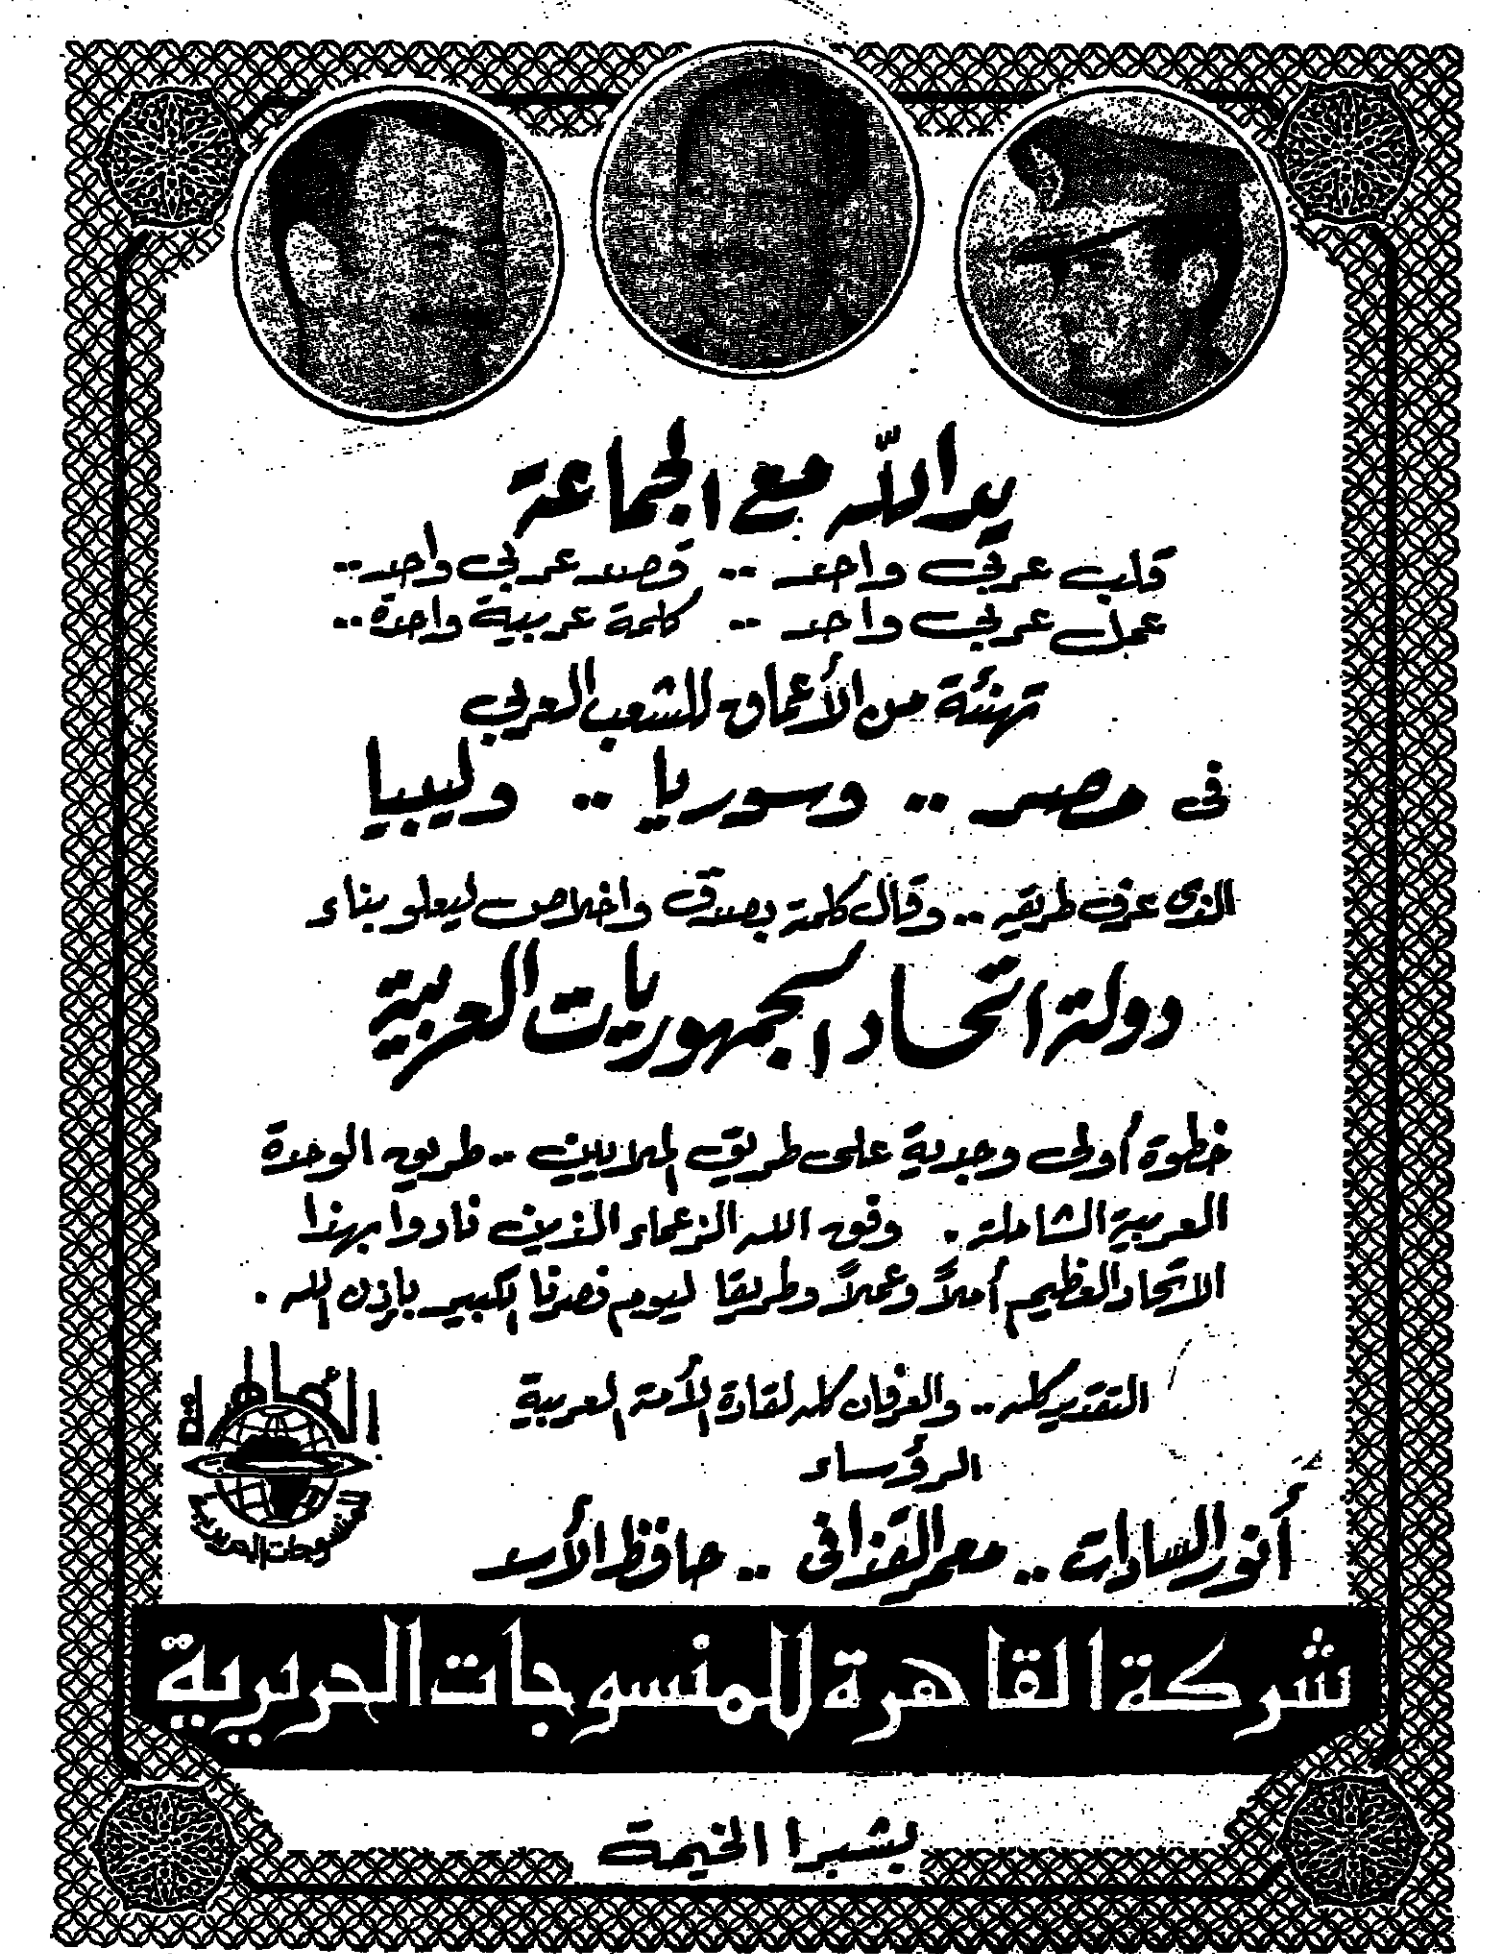 يد الله مع الجماعة
قلب عربى واحد .. قصد عربى واحد ..
عمل عربى واحد .. كلمة عربية واحدة ..
تهنئة من الأعماق للشعب العربى
فى مصر .. وسوريا .. وليبيا
الذى عرف طريقه .. وقال كلمته بصدق واخلاص ليعلو بناء
دولة اتحاد الجمهوريات العربية
خطوة أولى وجدية على طريق الملايين .. طريق الوحدة
العربية الشاملة . وفق الله الزعماء الذين نادوا بهذا
الاتحاد العظيم أملاً وعملاً وطريقا ليوم نصرنا الكبير بإذن الله .
التقدير كله .. والعرفان كله لقادة الأمة العربية
الرؤساء
أنور السادات .. معمر القذافى .. حافظ الأسد
القاهرة
للمنسوجات الحريرية
شركة القاهرة للمنسوجات الحريرية
بشبرا الخيمة